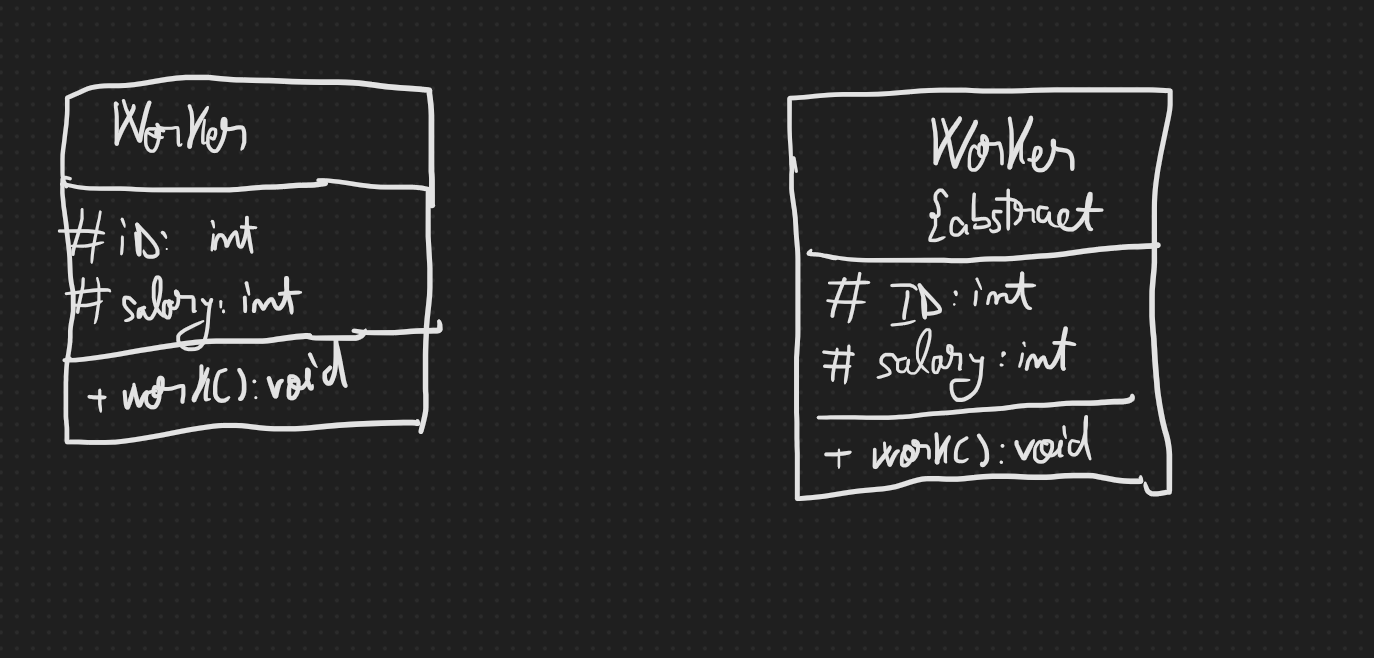 Worker
# iD: int
# salary: int
+ work(): void
Worker
{abstract
# ID: int
# salary: int
+ work(): void